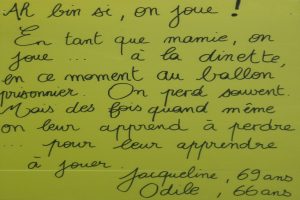 AH bin si, on joue !
En tant que mamie, on
joue ... à la dinette,
en ce moment au ballon
prisonnier. On perd souvent.
Mais des fois quand même
on leur apprend à perdre
... pour leur apprendre
à jouer.
Jacqueline, 69 ans
Odile, 66 ans